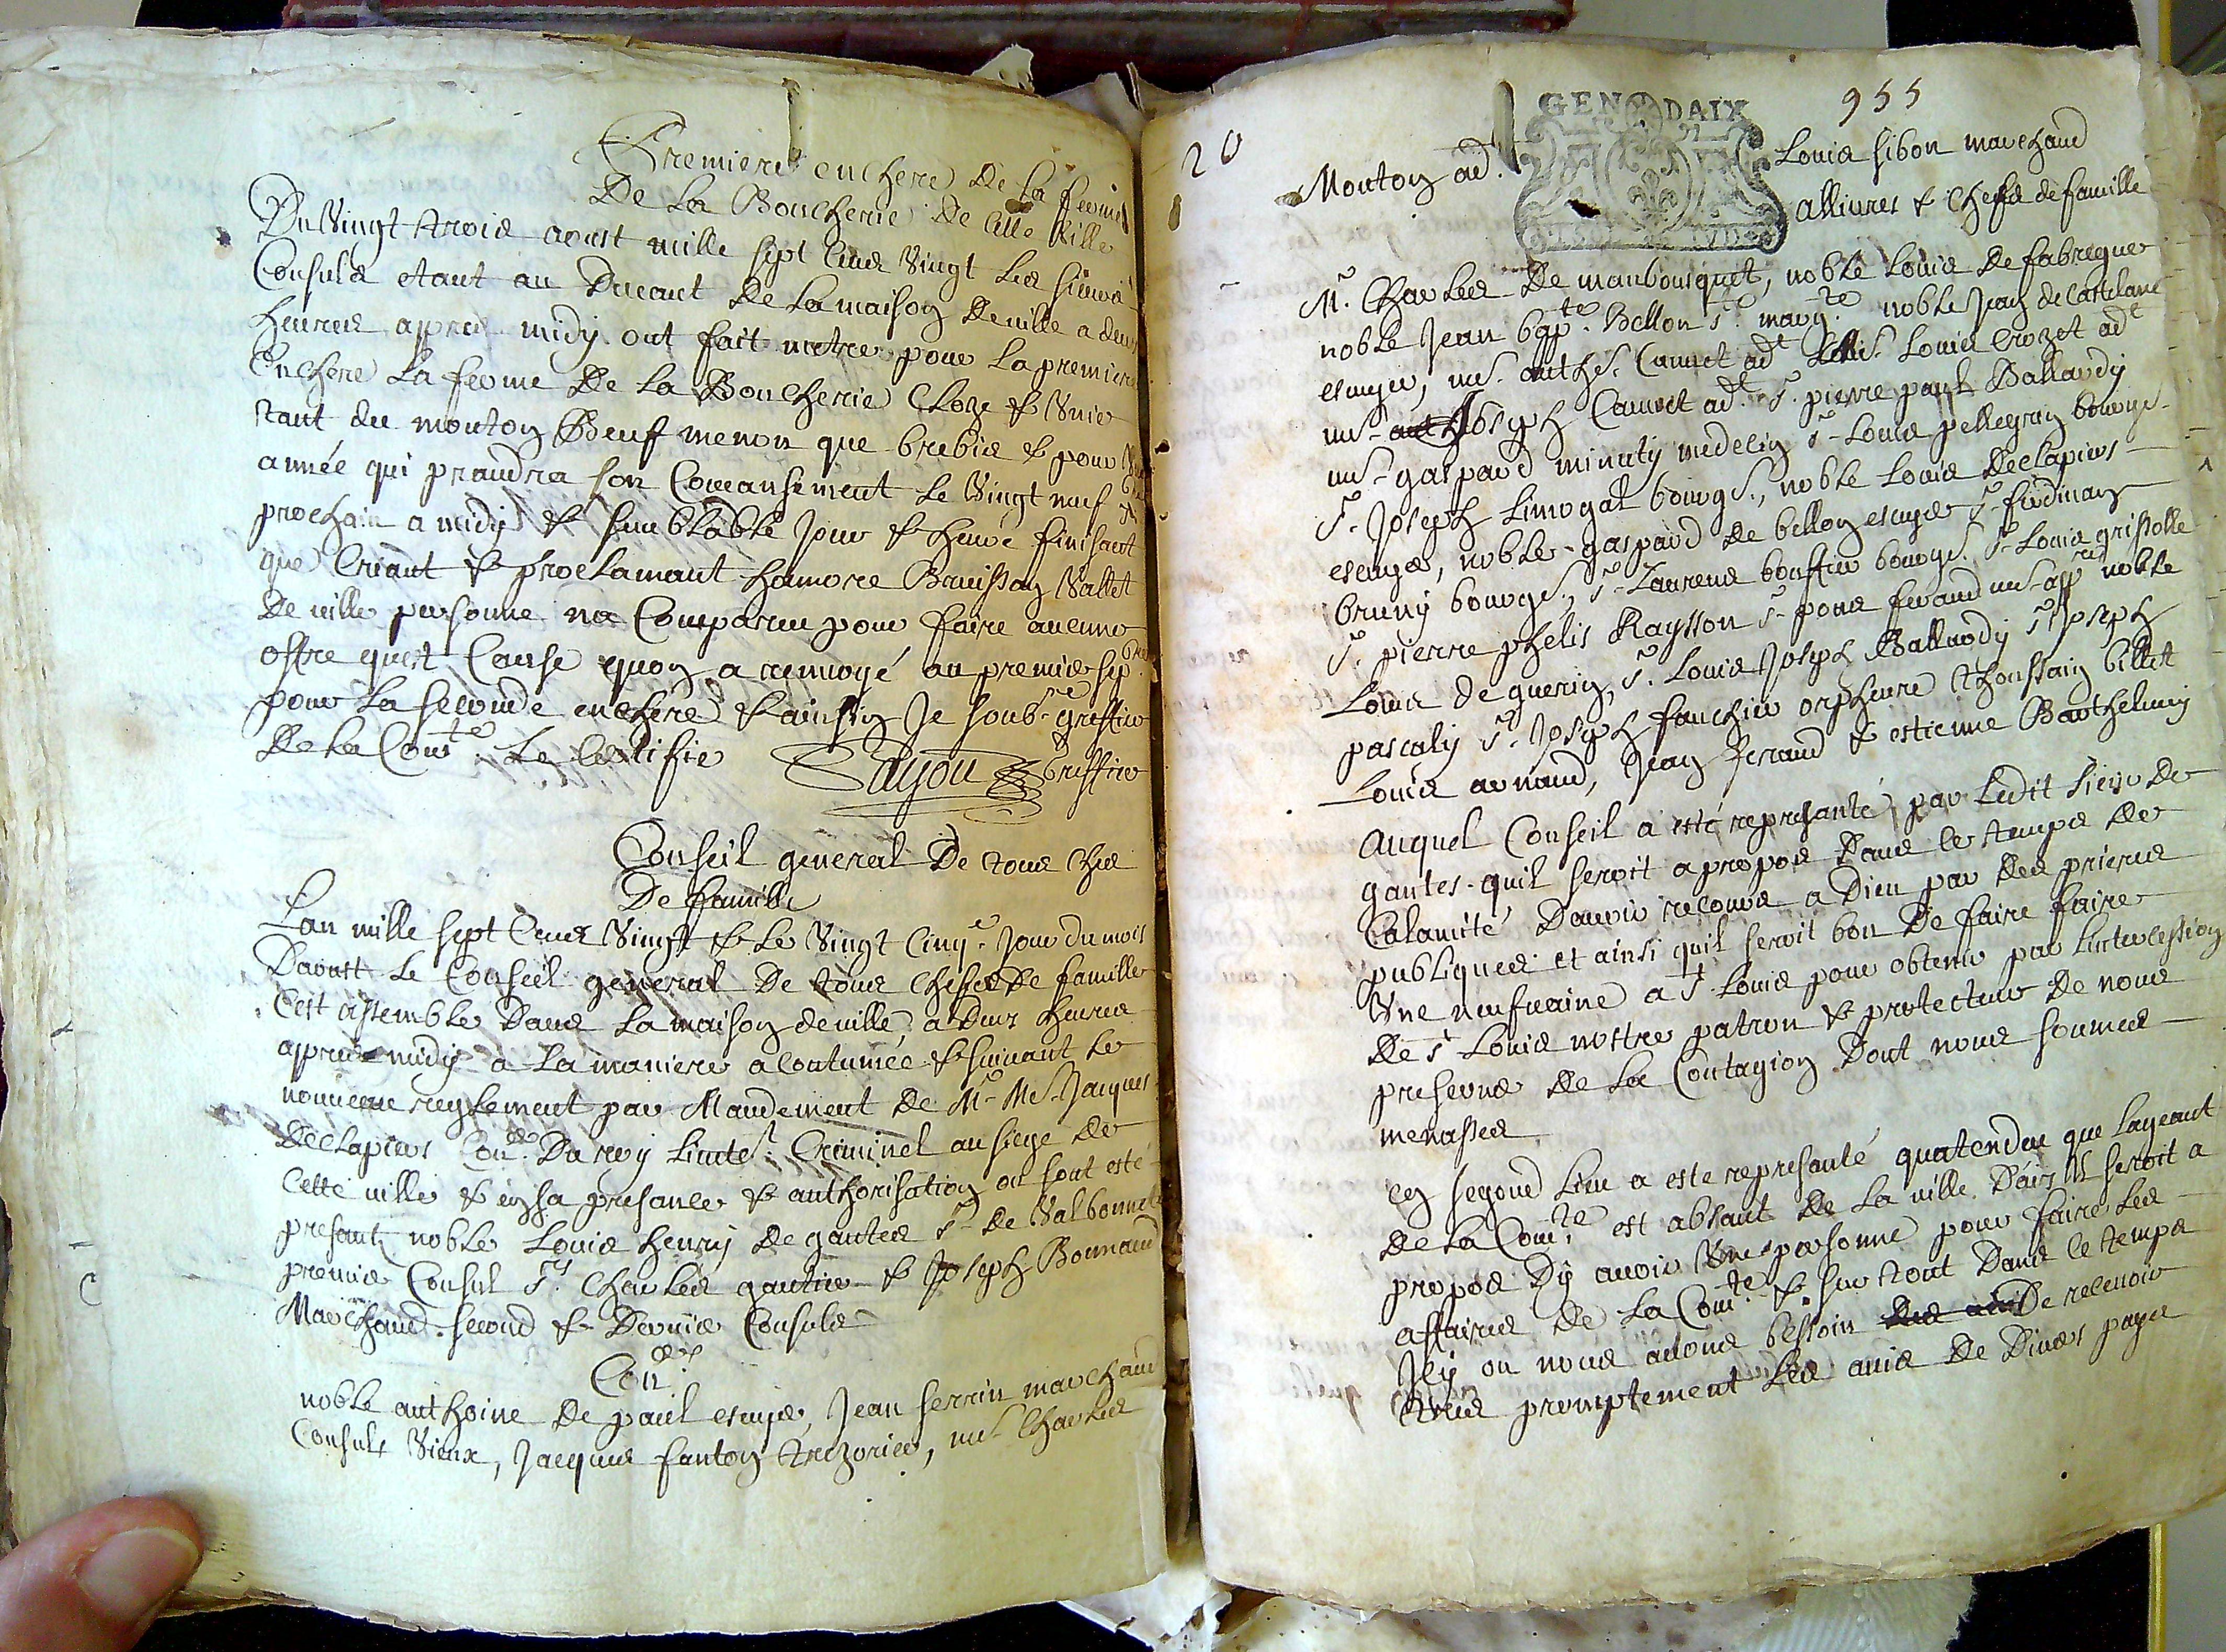 Premiere enchere De La ferme
De La Boucherie De Cette Ville
Du Vingt trois aoust mille sept Cens Vingt Les sieurs
Consuls etant au Devant De La maison Deville a deux
heures appres midy ont fait metre pour La premiere
Enchere La ferme De La Boucherie Cloze & Unie
tant du mouton Boeuf menon que brebis & pour Une
année qui prandra son Comansement Le Vingt neuf 7bre
prochain a midy & semblable jour & heure finissant
que Criant & proclamant honnore Bruissan Vallet
De ville personne na Comparue pour faire aucune
offre quest Cause quon a renvoyé au premier sepbre
pour La seconde enchere & ainsin Je soubs.é greffier
De La Com.té Le Certifie Greffier
Conseil general De tous Chès
De famille
Lan mille sept Cens Vingt & Le Vingt Cinq.e Jour du mois
Daoust Le Conseil general De tous Chefs De famille
Cest assemble Dans La maison deville a Deux heures
appres midy a La maniere acoutumée & suivant Le
nouveau reglement par Mandement De Mr Me Jacques
Declapiers Con.er Du roy Lieute.t Criminel au siege De
Cette ville & en sa presance & authorisation ou sont esté
presantz noble Louis henry De gantes Sr De Valbonnete
premier Consul Sr Charles gautier & Joseph Bonnaud
Marchand second & Dernier Consuls
Con.ers
noble anthoine De paul escuyer, Jean serrin marchand
Consuls Vieux, Jacques fanton trezorier, me Charles
20
GEN DAIX
955
Mouton ad.t Louis sibon marchand
allivres & Chefs de famille
Mr. Charles De maubousquet, noble Louis De fabregues
noble Jean bapte. Bellon Sr. noble Jean de Castelane
escuyer, me. anthe. Cauvet adt Louis Crozet adt
me Joseph Cauvet adt. Sr. pierre paul Ballardy
me gaspard minuty medecin Sr Louis pellegrin bourgs.
Sr. Joseph Limogat bourgs., noble Louis Declapiers
escuyer, noble gaspard De bellon escuyer Sr ferdinan
bruny bourgs., Sr Laurens bouffier bourgs. Sr Louis grissolle
Sr. pierre phelis Raysson Sr pons feraud me app.re noble
Louis De guerin, Sr. Louis Joseph Ballardy Sr Joseph
pascaly Sr. Joseph fauchier orpheure thoussain billet
Louis arnaud, Jean feraud & estienne Barthelemy
Auquel Conseil a esté represanté par Ledit sieur De
gantes quil seroit a propos Dans le temps De
Calamité Davoir recours a Dieu par Des prieres
publiques et ainsi quil seroit bon De faire faire
Une neufvaine a St Louis pour obtenir par Lintercession
De St Louis nostre patron & protecteur De nous
preserver De La Contagion Dont nous soumes
menasses
En segond Lieu a este represanté quatendu que Lageant
De La Com.té est absant De La ville Daix Il seroit a
propos Dy avoir Une personne pour faire Les
affaires De La Com.te & sur tout Dans le temps
Icy ou nous avons bessoin De recevoir
tres promptement Les avis De Divers pays